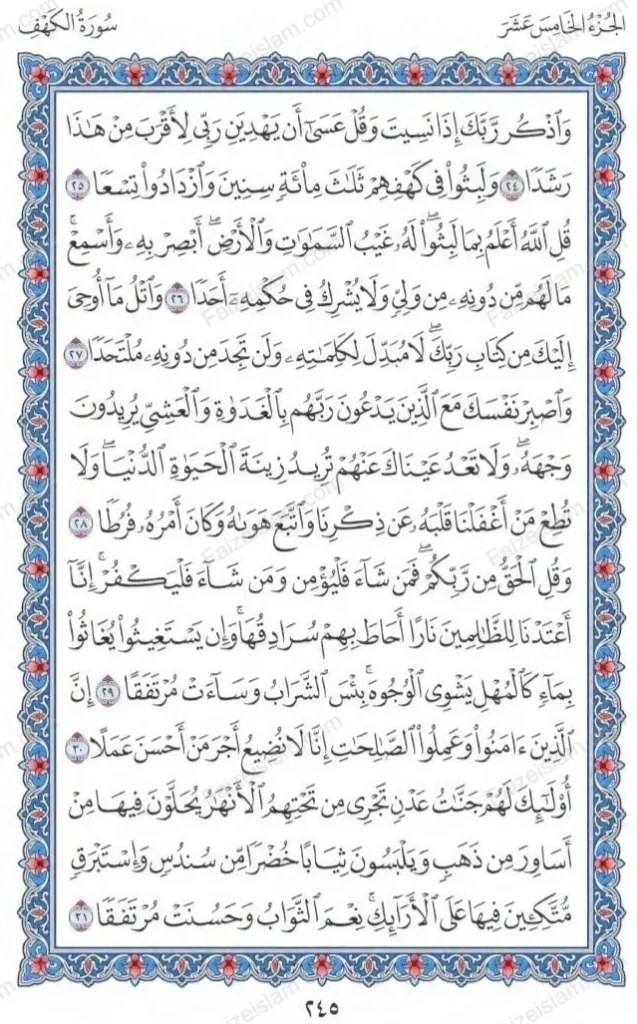 الجزء الخامس عشر
سورة الكهف
وَٱذۡكُر رَّبَّكَ إِذَا نَسِيتَ وَقُلۡ عَسَىٰٓ أَن يَهۡدِيَنِ رَبِّي لِأَقۡرَبَ مِنۡ هَٰذَا
رَشَدٗا ٢٤ وَلَبِثُواْ فِي كَهۡفِهِمۡ ثَلَٰثَ مِاْئَةٖ سِنِينَ وَٱزۡدَادُواْ تِسۡعٗا ٢٥
قُلِ ٱللَّهُ أَعۡلَمُ بِمَا لَبِثُواْۖ لَهُۥ غَيۡبُ ٱلسَّمَٰوَٰتِ وَٱلۡأَرۡضِۖ أَبۡصِرۡ بِهِۦ وَأَسۡمِعۡۚ
مَا لَهُم مِّن دُونِهِۦ مِن وَلِيّٖ وَلَا يُشۡرِكُ فِي حُكۡمِهِۦٓ أَحَدٗا ٢٦ وَٱتۡلُ مَآ أُوحِيَ
إِلَيۡكَ مِن كِتَابِ رَبِّكَۖ لَا مُبَدِّلَ لِكَلِمَٰتِهِۦ وَلَن تَجِدَ مِن دُونِهِۦ مُلۡتَحَدٗا ٢٧
وَٱصۡبِرۡ نَفۡسَكَ مَعَ ٱلَّذِينَ يَدۡعُونَ رَبَّهُم بِٱلۡغَدَوٰةِ وَٱلۡعَشِيِّ يُرِيدُونَ
وَجۡهَهُۥۖ وَلَا تَعۡدُ عَيۡنَاكَ عَنۡهُمۡ تُرِيدُ زِينَةَ ٱلۡحَيَوٰةِ ٱلدُّنۡيَاۖ وَلَا
تُطِعۡ مَنۡ أَغۡفَلۡنَا قَلۡبَهُۥ عَن ذِكۡرِنَا وَٱتَّبَعَ هَوَىٰهُ وَكَانَ أَمۡرُهُۥ فُرُطٗا ٢٨
وَقُلِ ٱلۡحَقُّ مِن رَّبِّكُمۡۖ فَمَن شَآءَ فَلۡيُؤۡمِن وَمَن شَآءَ فَلۡيَكۡفُرۡۚ إِنَّآ
أَعۡتَدۡنَا لِلظَّٰلِمِينَ نَارًا أَحَاطَ بِهِمۡ سُرَادِقُهَاۚ وَإِن يَسۡتَغِيثُواْ يُغَاثُواْ
بِمَآءٖ كَٱلۡمُهۡلِ يَشۡوِي ٱلۡوُجُوهَۚ بِئۡسَ ٱلشَّرَابُ وَسَآءَتۡ مُرۡتَفَقًا ٢٩ إِنَّ
ٱلَّذِينَ ءَامَنُواْ وَعَمِلُواْ ٱلصَّٰلِحَٰتِ إِنَّا لَا نُضِيعُ أَجۡرَ مَنۡ أَحۡسَنَ عَمَلًا ٣٠
أُوْلَٰٓئِكَ لَهُمۡ جَنَّٰتُ عَدۡنٖ تَجۡرِي مِن تَحۡتِهِمُ ٱلۡأَنۡهَٰرُ يُحَلَّوۡنَ فِيهَا مِنۡ
أَسَاوِرَ مِن ذَهَبٖ وَيَلۡبَسُونَ ثِيَابًا خُضۡرٗا مِّن سُندُسٖ وَإِسۡتَبۡرَقٖ
مُّتَّكِـِٔينَ فِيهَا عَلَى ٱلۡأَرَآئِكِۚ نِعۡمَ ٱلثَّوَابُ وَحَسُنَتۡ مُرۡتَفَقٗا ٣١
٢٤٥
Faizeislam.com